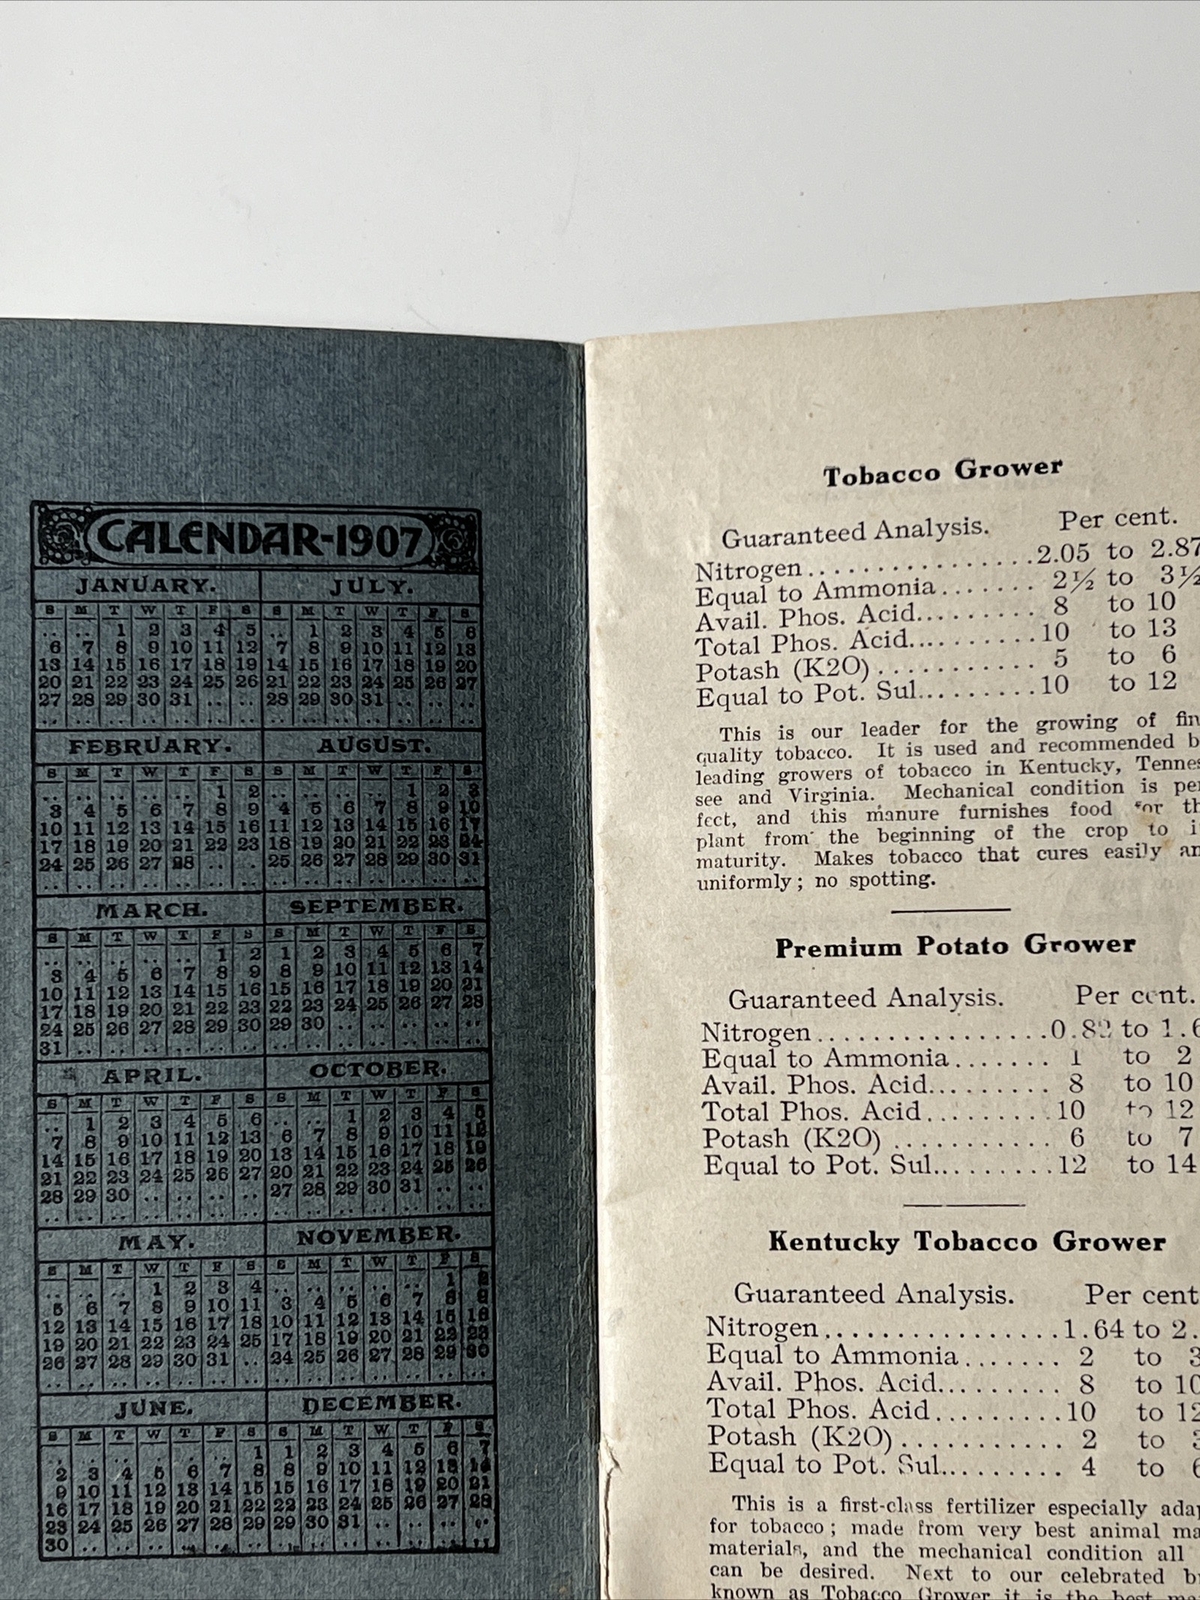 CALENDAR-1907
JANUARY.
S M T W T F S
.. .. 1 2 3 4 5
6 7 8 9 10 11 12
13 14 15 16 17 18 19
20 21 22 23 24 25 26
27 28 29 30 31 .. ..
FEBRUARY.
S M T W T F S
.. .. .. .. .. 1 2
3 4 5 6 7 8 9
10 11 12 13 14 15 16
17 18 19 20 21 22 23
24 25 26 27 28 .. ..
MARCH.
S M T W T F S
.. .. .. .. .. 1 2
3 4 5 6 7 8 9
10 11 12 13 14 15 16
17 18 19 20 21 22 23
24 25 26 27 28 29 30
31 .. .. .. .. .. ..
APRIL.
S M T W T F S
.. 1 2 3 4 5 6
7 8 9 10 11 12 13
14 15 16 17 18 19 20
21 22 23 24 25 26 27
28 29 30 .. .. .. ..
MAY.
S M T W T F S
.. .. .. 1 2 3 4
5 6 7 8 9 10 11
12 13 14 15 16 17 18
19 20 21 22 23 24 25
26 27 28 29 30 31 ..
JUNE.
S M T W T F S
.. .. .. .. .. .. 1
2 3 4 5 6 7 8
9 10 11 12 13 14 15
16 17 18 19 20 21 22
23 24 25 26 27 28 29
30 .. .. .. .. .. ..
JULY.
S M T W T F S
.. 1 2 3 4 5 6
7 8 9 10 11 12 13
14 15 16 17 18 19 20
21 22 23 24 25 26 27
28 29 30 31 .. .. ..
AUGUST.
S M T W T F S
.. .. .. .. 1 2 3
4 5 6 7 8 9 10
11 12 13 14 15 16 17
18 19 20 21 22 23 24
25 26 27 28 29 30 31
SEPTEMBER.
S M T W T F S
1 2 3 4 5 6 7
8 9 10 11 12 13 14
15 16 17 18 19 20 21
22 23 24 25 26 27 28
29 30 .. .. .. .. ..
OCTOBER.
S M T W T F S
.. .. 1 2 3 4 5
6 7 8 9 10 11 12
13 14 15 16 17 18 19
20 21 22 23 24 25 26
27 28 29 30 31 .. ..
NOVEMBER.
S M T W T F S
.. .. .. .. .. 1 2
3 4 5 6 7 8 9
10 11 12 13 14 15 16
17 18 19 20 21 22 23
24 25 26 27 28 29 30
DECEMBER.
S M T W T F S
1 2 3 4 5 6 7
8 9 10 11 12 13 14
15 16 17 18 19 20 21
22 23 24 25 26 27 28
29 30 31 .. .. .. ..
Tobacco Grower
Guaranteed Analysis. Per cent.
Nitrogen................2.05 to 2.87
Equal to Ammonia....... 2½ to 3½
Avail. Phos. Acid........ 8 to 10
Total Phos. Acid.........10 to 13
Potash (K2O)............ 5 to 6
Equal to Pot. Sul.........10 to 12
This is our leader for the growing of fin
quality tobacco. It is used and recommended b
leading growers of tobacco in Kentucky, Tennes
see and Virginia. Mechanical condition is per
fect, and this manure furnishes food for th
plant from the beginning of the crop to i
maturity. Makes tobacco that cures easily an
uniformly; no spotting.
Premium Potato Grower
Guaranteed Analysis. Per cent.
Nitrogen...............0.82 to 1.6
Equal to Ammonia....... 1 to 2
Avail. Phos. Acid........ 8 to 10
Total Phos. Acid........10 to 12
Potash (K2O)........... 6 to 7
Equal to Pot. Sul........12 to 14
Kentucky Tobacco Grower
Guaranteed Analysis. Per cent
Nitrogen...............1.64 to 2.
Equal to Ammonia....... 2 to 3
Avail. Phos. Acid........ 8 to 10
Total Phos. Acid........10 to 12
Potash (K2O)........... 2 to 3
Equal to Pot. Sul........ 4 to 6
This is a first-class fertilizer especially adap
for tobacco; made from very best animal ma
materials, and the mechanical condition all
can be desired. Next to our celebrated br
known as Tobacco Grower it is the best ma